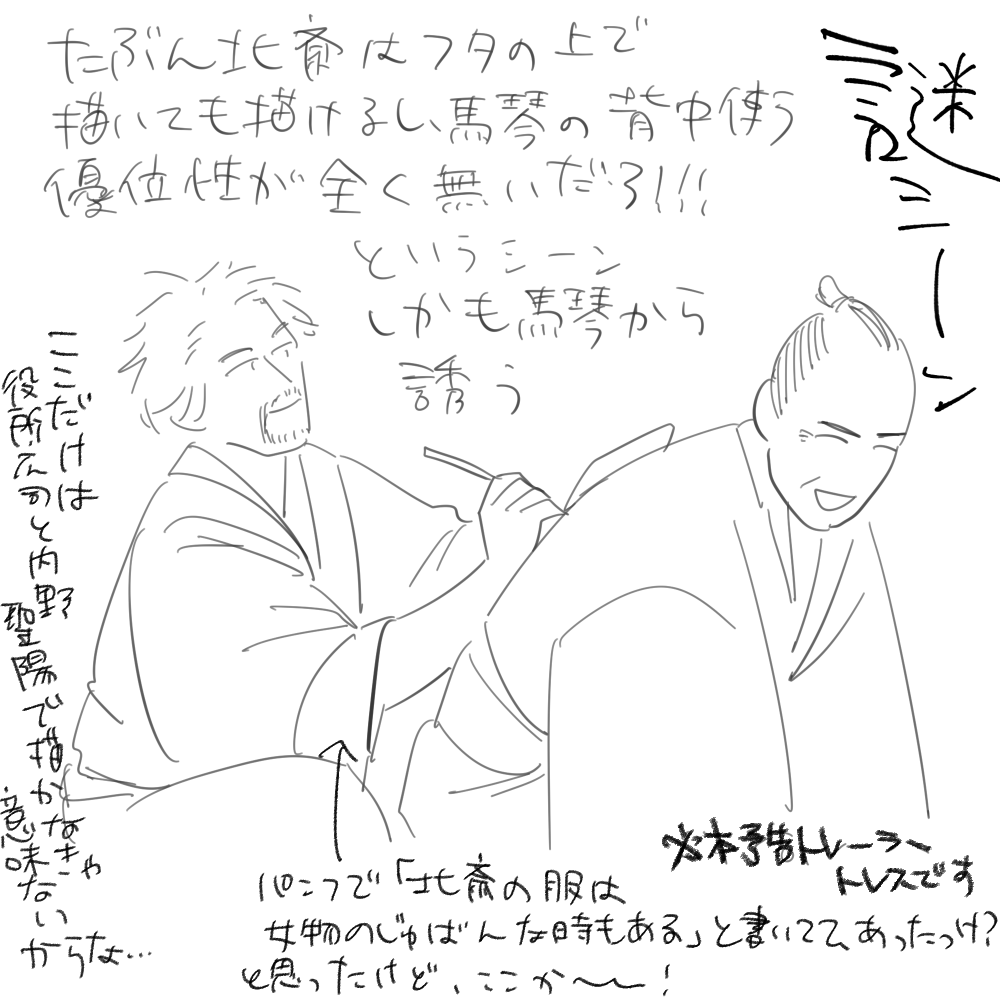 謎シーン
たぶん北斎はフタの上で
描いても描けるし、馬琴の背中使う
優位性が全く無いだろ!!!
というシーン
しかも馬琴から
誘う
ここだけは
役所広司と内野
聖陽で描かなきゃ
意味ない
からなぁ…
※本予告トレーラー
トレスです
パンフで「北斎の服は
女物のじゅばんな時もある」と書いてて、あったっけ?
と思ったけど、ここか〜〜!